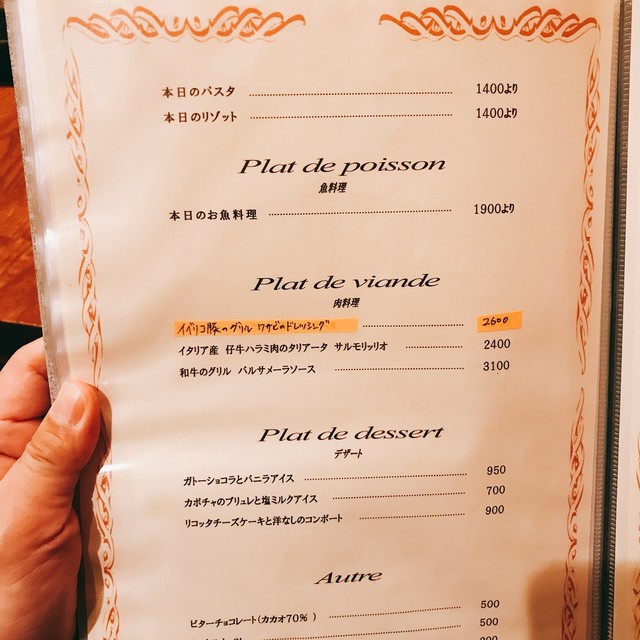 本日のパスタ 1400より
本日のリゾット 1400より
Plat de poisson
魚料理
本日のお魚料理 1900より
Plat de viande
肉料理
イベリコ豚のグリル ワサビのドレッシング 2600
イタリア産 仔牛ハラミ肉のタリアータ サルモリッリオ 2400
和牛のグリル バルサメーラソース 3100
Plat de dessert
デザート
ガトーショコラとバニラアイス 950
カボチャのブリュレと塩ミルクアイス 700
リコッタチーズケーキと洋なしのコンポート 900
Autre
ビターチョコレート(カカオ70% ) 500
500